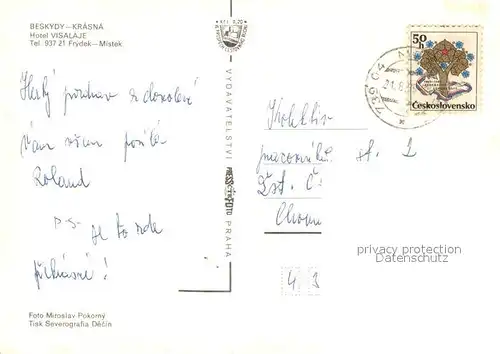 BESKYDY—KRÁSNÁ
Hotel VISALAJE
Tel. 937 21 Frýdek—Místek
Hezký pozdrav z dovolené
Vám všem posílá
Roland
P.S. je to zde
překrásné!
Foto Miroslav Pokorný
Tisk Severografia Děčín
VYDAVATELSTVÍ PRESSFOTO PRAHA
50
h
Československo
739 04
Kolektiv
pracovníků st. 1
Žst. Č.
Chom
43
privacy protection
Referenzbild